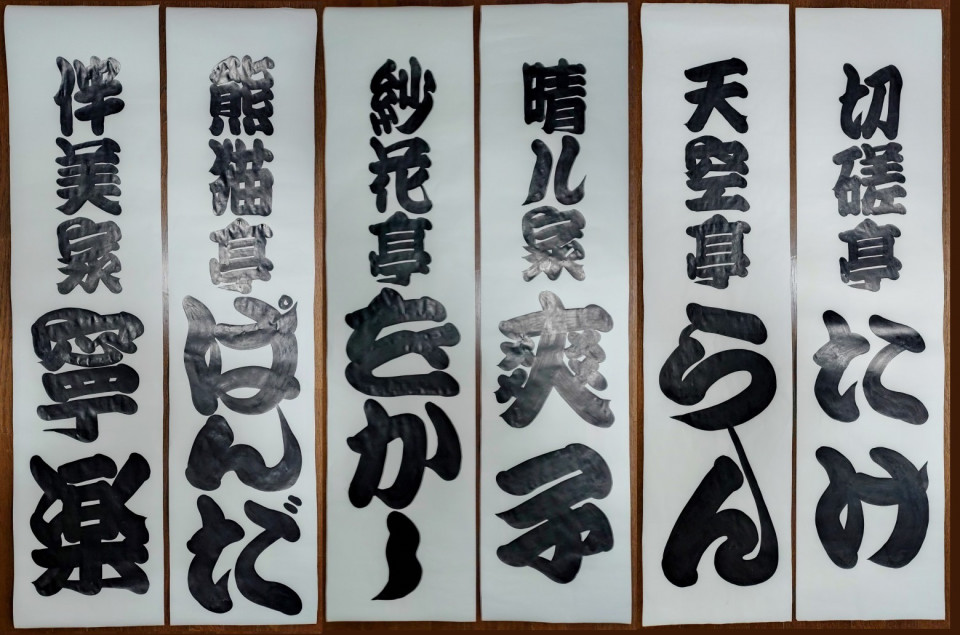 切磋亭たけ
天堅亭らん
晴ル家爽子
紗花亭をかー
熊猫亭ぱんだ
伴美家寧楽